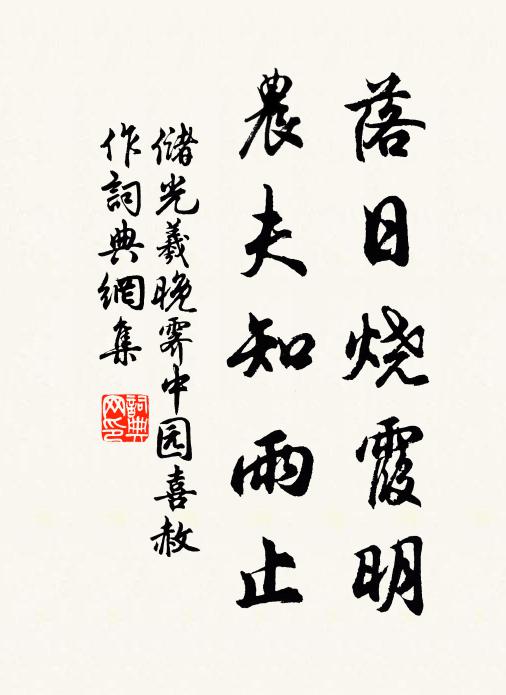 落日烧霞明
農夫知雨止
储光羲晚霁中园喜赦
作詞典網集
詞典网印